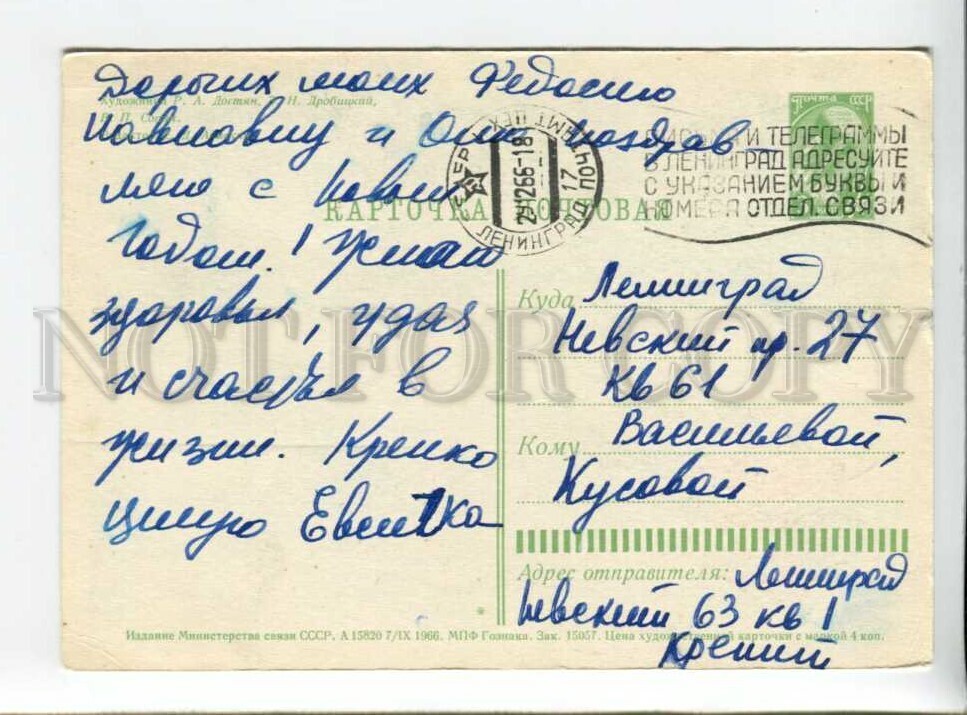 Дорогих моих Федосию
Художники Р. А. Достян, Н. Дробицкий,
Павловну и Олю поздрав-
ляю с Новым
годом! Желаю
здоровья, удач
и счастья в
жизни. Крепко
целую Евгешка
КАРТОЧКА ПОЧТОВАЯ
СССР
29 12 66 - 18
ЛЕНИНГРАД ПОЧТАМТ
17
ПОЧТА СССР
ПИСЬМА И ТЕЛЕГРАММЫ
В ЛЕНИНГРАД АДРЕСУЙТЕ
С УКАЗАНИЕМ БУКВЫ И
НОМЕРА ОТДЕЛ. СВЯЗИ
Куда Ленинград
Невский пр. 27
кв 61
Кому Васильевой,
Кусовой
Адрес отправителя: Ленинград
Невский 63 кв 1
Издание Министерства связи СССР. А 15820 7/IX 1966. МПФ Гознака. Зак. 15057. Цена художественной карточки с маркой 4 коп.
NOT FOR COPY